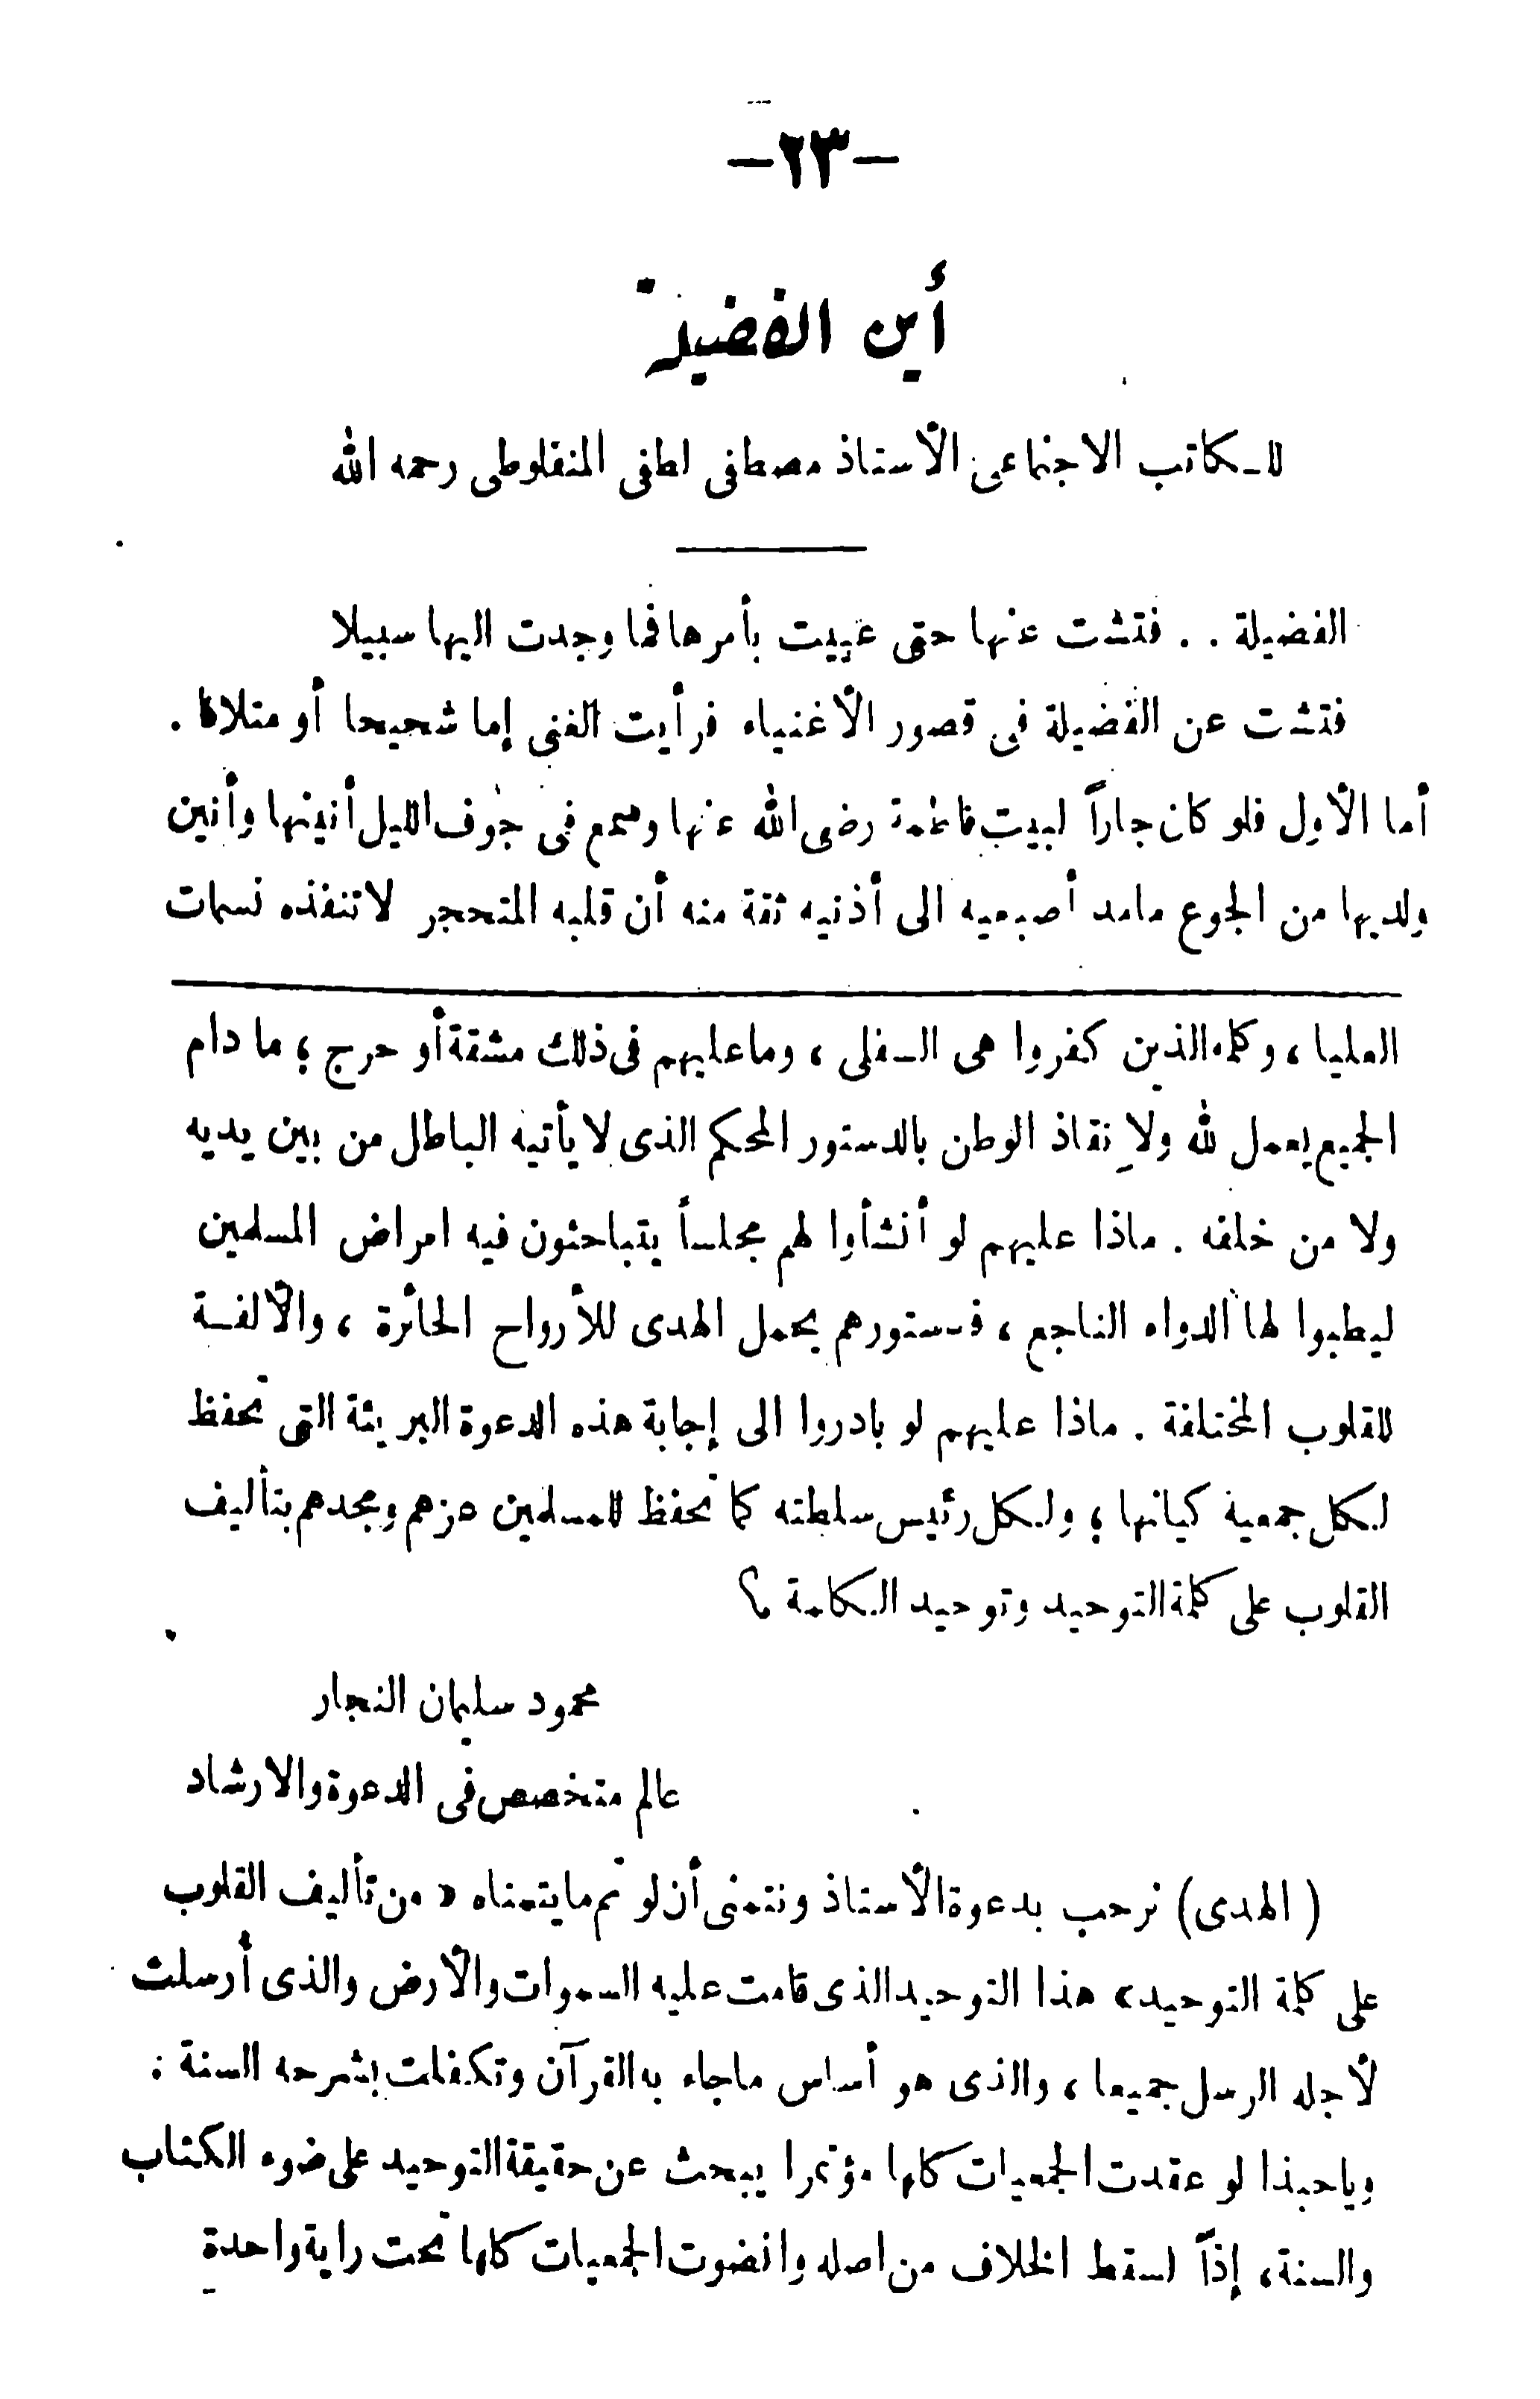 —٢٣—
أين الفضيلة
للكاتب الاجتماعى الأستاذ مصطفى لطفى المنفلوطى رحمه الله
الفضيلة . . فتشت عنها حتى عييت بأمرها فما وجدت اليها سبيلا
فتشت عن الفضيلة فى قصور الأغنياء فرأيت الغنى إما شحيحا أو متلافا .
أما الأول فلو كان جاراً لبيت فاطمة رضى الله عنها وسمع فى جوف الليل أنينها وأنين
ولديها من الجوع مامد أصبعيه الى أذنيه ثقة منه أن قلبه المتحجر لا تنفذه نسمات
العليا ، وكلمة الذين كفروا هى السفلى ، وما عليهم فى ذلك مشقة أو حرج ؛ ما دام
الجميع يعمل لله ولإنقاذ الوطن بالدستور المحكم الذى لا يأتيه الباطل من بين يديه
ولا من خلفه . ماذا عليهم لو أنشأوا لهم مجلساً يتباحثون فيه امراض المسلمين
ليطبوا لها الدواء الناجع ، فدستورهم يحمل الهدى للأرواح الحائرة ، والألفة
للقلوب المختلفة . ماذا عليهم لو بادروا الى إجابة هذه الدعوة البريئة التى تحفظ
لكل جمعية كيانها ؛ ولكل رئيس سلطته كما تحفظ للمسلمين عزهم ومجدهم بتأليف
القلوب على كلمة التوحيد وتوحيد الكلمة ؟
محمود سليمان النجار
عالم متخصص فى الدعوة والارشاد
( الهدى ) نرحب بدعوة الأستاذ ونتمنى أن لو تم ما يتمناه « من تأليف القلوب
على كلمة التوحيد » هذا التوحيد الذى قامت عليه السموات والأرض والذى أرسلت
لأجله الرسل جميعا ، والذى هو أساس ماجاء به القرآن وتكفلت بشرحه السنة .
وياحبذا لو عقدت الجمعيات كلها مؤتمرا يبحث عن حقيقة التوحيد على ضوء الكتاب
والسنة ، إذاً لسقط الخلاف من اصله وانضوت الجمعيات كلها تحت راية واحدة